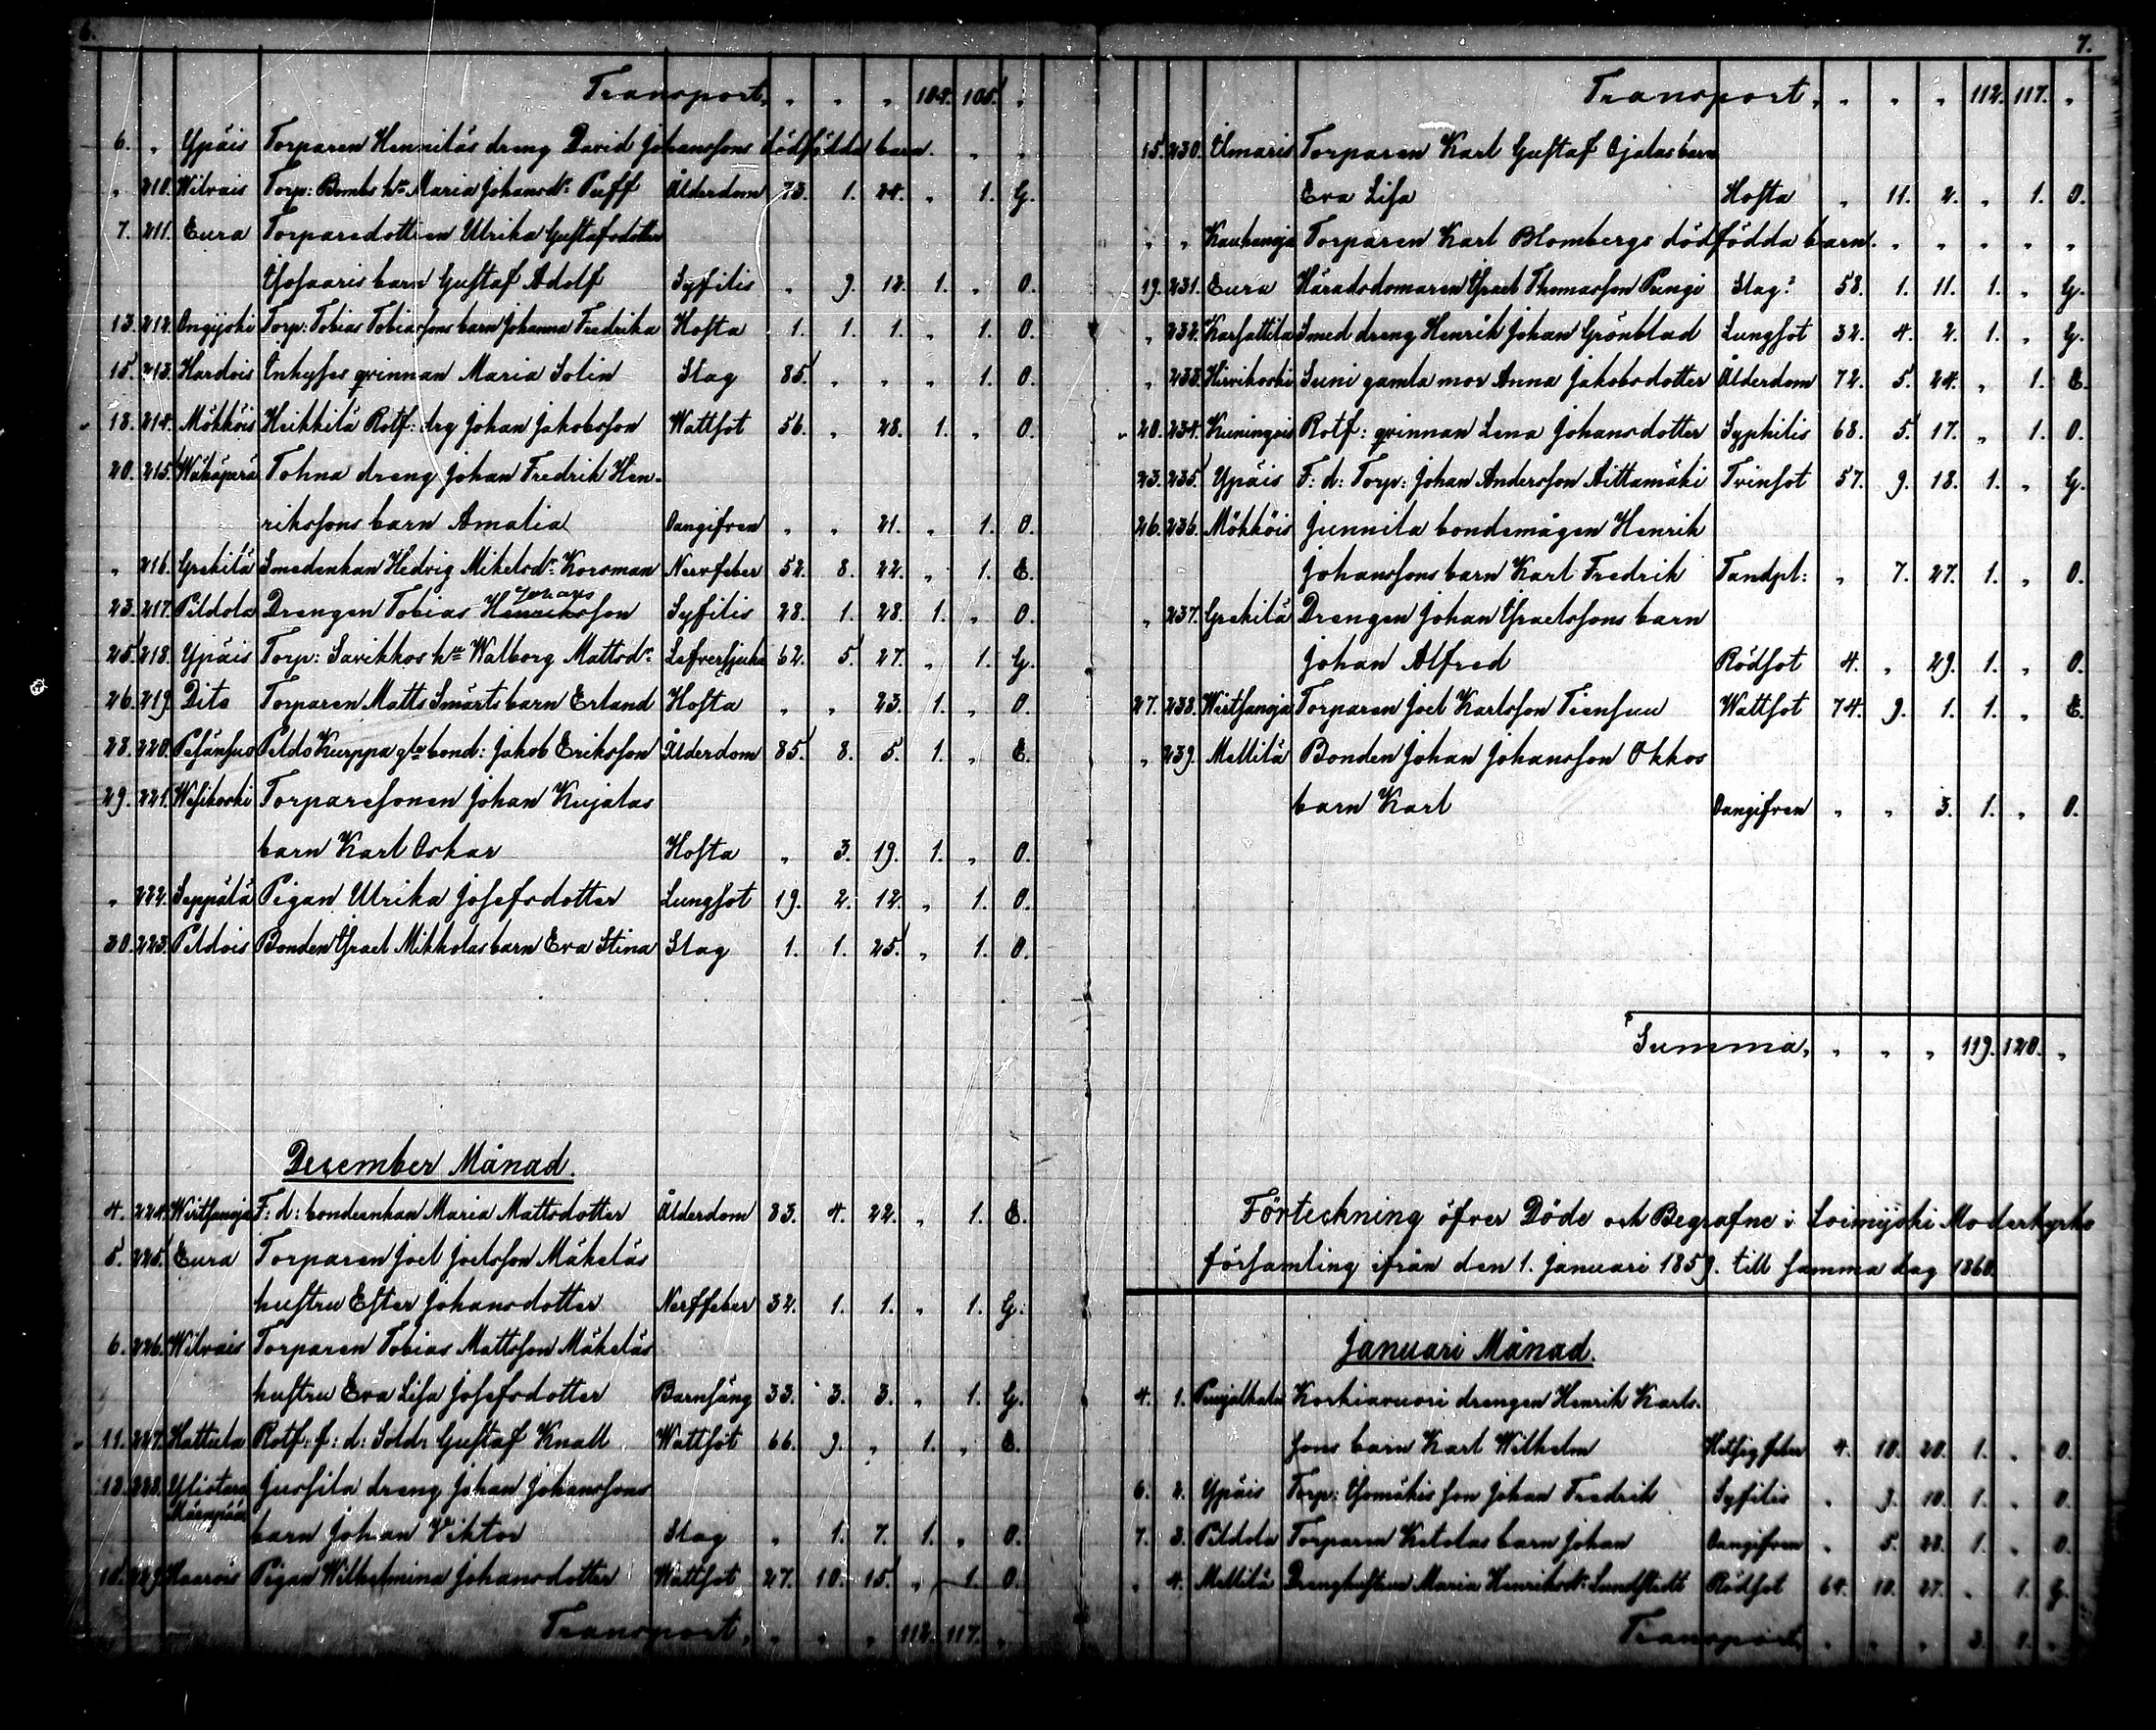 6.
Transport, „ „ „ 104. 105. „
6. „ Ypäis Torparen Henniläs dreng David Johanssons dödfödda barn. „ „
„ 210. Wilvais Torp: Bombs h:u Maria Johansd:r Puff Ålderdom 73. 1. 24. „ 1. G.
7. 211. Eura Torparedottren Ulrika Gustafsdotter
Isosaaris barn Gustaf Adolf Syfilis „ 9. 12. 1. „ O.
13. 212. Ongijoki Torp: Tobias Tobiassons barn Johanna Fredrika Hosta 1. 1. 1. „ 1. O.
15. 213. Hardois Inhyses qvinnan Maria Solin Slag 85. „ „ „ 1. O.
18. 214. Mökköis Heikkilä Rotf: drg Johan Jakobsson Wattsot 56. „ 28. 1. „ O.
20. 215. Wähäperä Tohna dreng Johan Fredrik Hen-
rikssons barn Amalia Oangifven „ „ 21. „ 1. O.
„ 216. Grekilä Smedenkan Hedvig Mikelsd:r Korsman Nervfeber 52. 8. 22. „ 1. E.
Johans
23. 217. Pildola Drengen Tobias Henriksson Syfilis 28. 1. 28. 1. „ O.
25. 218. Ypäis Torp: Savikkos h:u Walborg Mattsd:r Lefversjuka 62. 5. 27. „ 1. G.
26. 219. Dito Torparen Matts Smärts barn Erland Hosta „ „ 23. 1. „ O.
28. 220. Pesänsuo Pelds Kurppa gla bond: Jakob Eriksson Ålderdom 85. 8. 5. 1. „ E.
29. 221. Wesikoski Torparesonen Johan Kujalas
barn Karl Oskar Hosta „ 3. 19. 1. „ O.
„ 222. Seppälä Pigan Ulrika Josefsdotter Lungsot 19. 2. 12. „ 1. O.
30. 223. Peldois Bonden Israel Mikkolas barn Eva Stina Slag 1. 1. 25. „ 1. O.
December Månad.
4. 224. Wirtsanoja F: d: bondeenkan Maria Mattsdotter Ålderdom 83. 4. 22. „ 1. E.
5. 225. Eura Torparen Joel Joelsson Mäkeläs
hustru Ester Johansdotter Nerffeber 32. 1. 1. „ 1. G.
6. 226. Wilvais Torparen Tobias Mattsson Mäkeläs
hustru Eva Lisa Josefsdotter Barnsäng 33. 3. 3. „ 1. G.
11. 227. Hattula Rotf: f: d: Sold: Gustaf Knall Wattsot 66. 9. „ 1. „ E.
13. 228. Ylistaro Jussila dreng Johan Johanssons
barn Johan Viktor Slag „ 1. 7. 1. „ O.
229. Haarois Pigan Wilhelmina Johansdotter Wattsot 27. 10. 15. „ 1. O.
Transport, „ „ „ 112. 117. „
7.
Transport, „ „ „ 112. 117. „
15. 230. Ilmaris Torparen Karl Gustaf Ojalas barn
Eva Lisa Hosta „ 11. 2. „ 1. O.
„ „ Kauhanoja Torparen Karl Blombergs dödfödda barn. „ „ „ „ „
19. 231. Eura Häradsdomaren Israel Thomasson Pungi Slag? 58. 1. 11. 1. „ G.
„ 232. Karsattila Smed dreng Henrik Johan Grönblad Lungsot 32. 4. 2. 1. „ G.
„ 233. Hirvikoski Suni gamla mor Anna Jakobsdotter Ålderdom 72. 5. 24. „ 1. E.
20. 234. Kuningois Rotf: qvinnan Lena Johansdotter Syphilis 68. 5. 17. „ 1. O.
23. 235. Ypäis F: d: Torp: Johan Andersson Aittamäki Tvinsot 57. 9. 18. 1. „ G.
26. 236. Mökköis Junnila bondemågen Henrik
Johanssons barn Karl Fredrik Tandpl: „ 7. 27. 1. „ O.
„ 237. Grekilä Drengen Johan Israelssons barn
Johan Alfred Rödsot 4. „ 29. 1. „ O.
27. 238. Wirtsanoja Torparen Joel Karlsson Tiensuu Wattsot 74. 9. 1. 1. „ E.
„ 239. Mellilä Bonden Johan Johansson Okkos
barn Karl Oangifven „ „ 3. 1. „ O.
Summa, „ „ „ 119. 120. „
Förteckning öfver Döde och Begrafne i Loimijoki Moderkyrko
församling ifrån den 1. Januari 1859. till samma dag 1860.
Januari Månad.
4. 1. Korkiavuori drengen Henrik Karls-
sons barn Karl Wilhelm Hetsig feber 4. 10. 20. 1. „ O.
6. 2. Ypäis Torp: Isomäkis son Johan Fredrik Syfilis „ 9. 10. 1. „ O.
7. 3. Pildola Torparen Ketolas barn Johan Oangifven „ 5. 28. 1. „ O.
„ 4. Mellilä Drenghustrun Maria Henriksd:r Lundstedt Rödsot 64. 10. 27. „ 1. G.
Transport, „ „ „ 3. 1. „